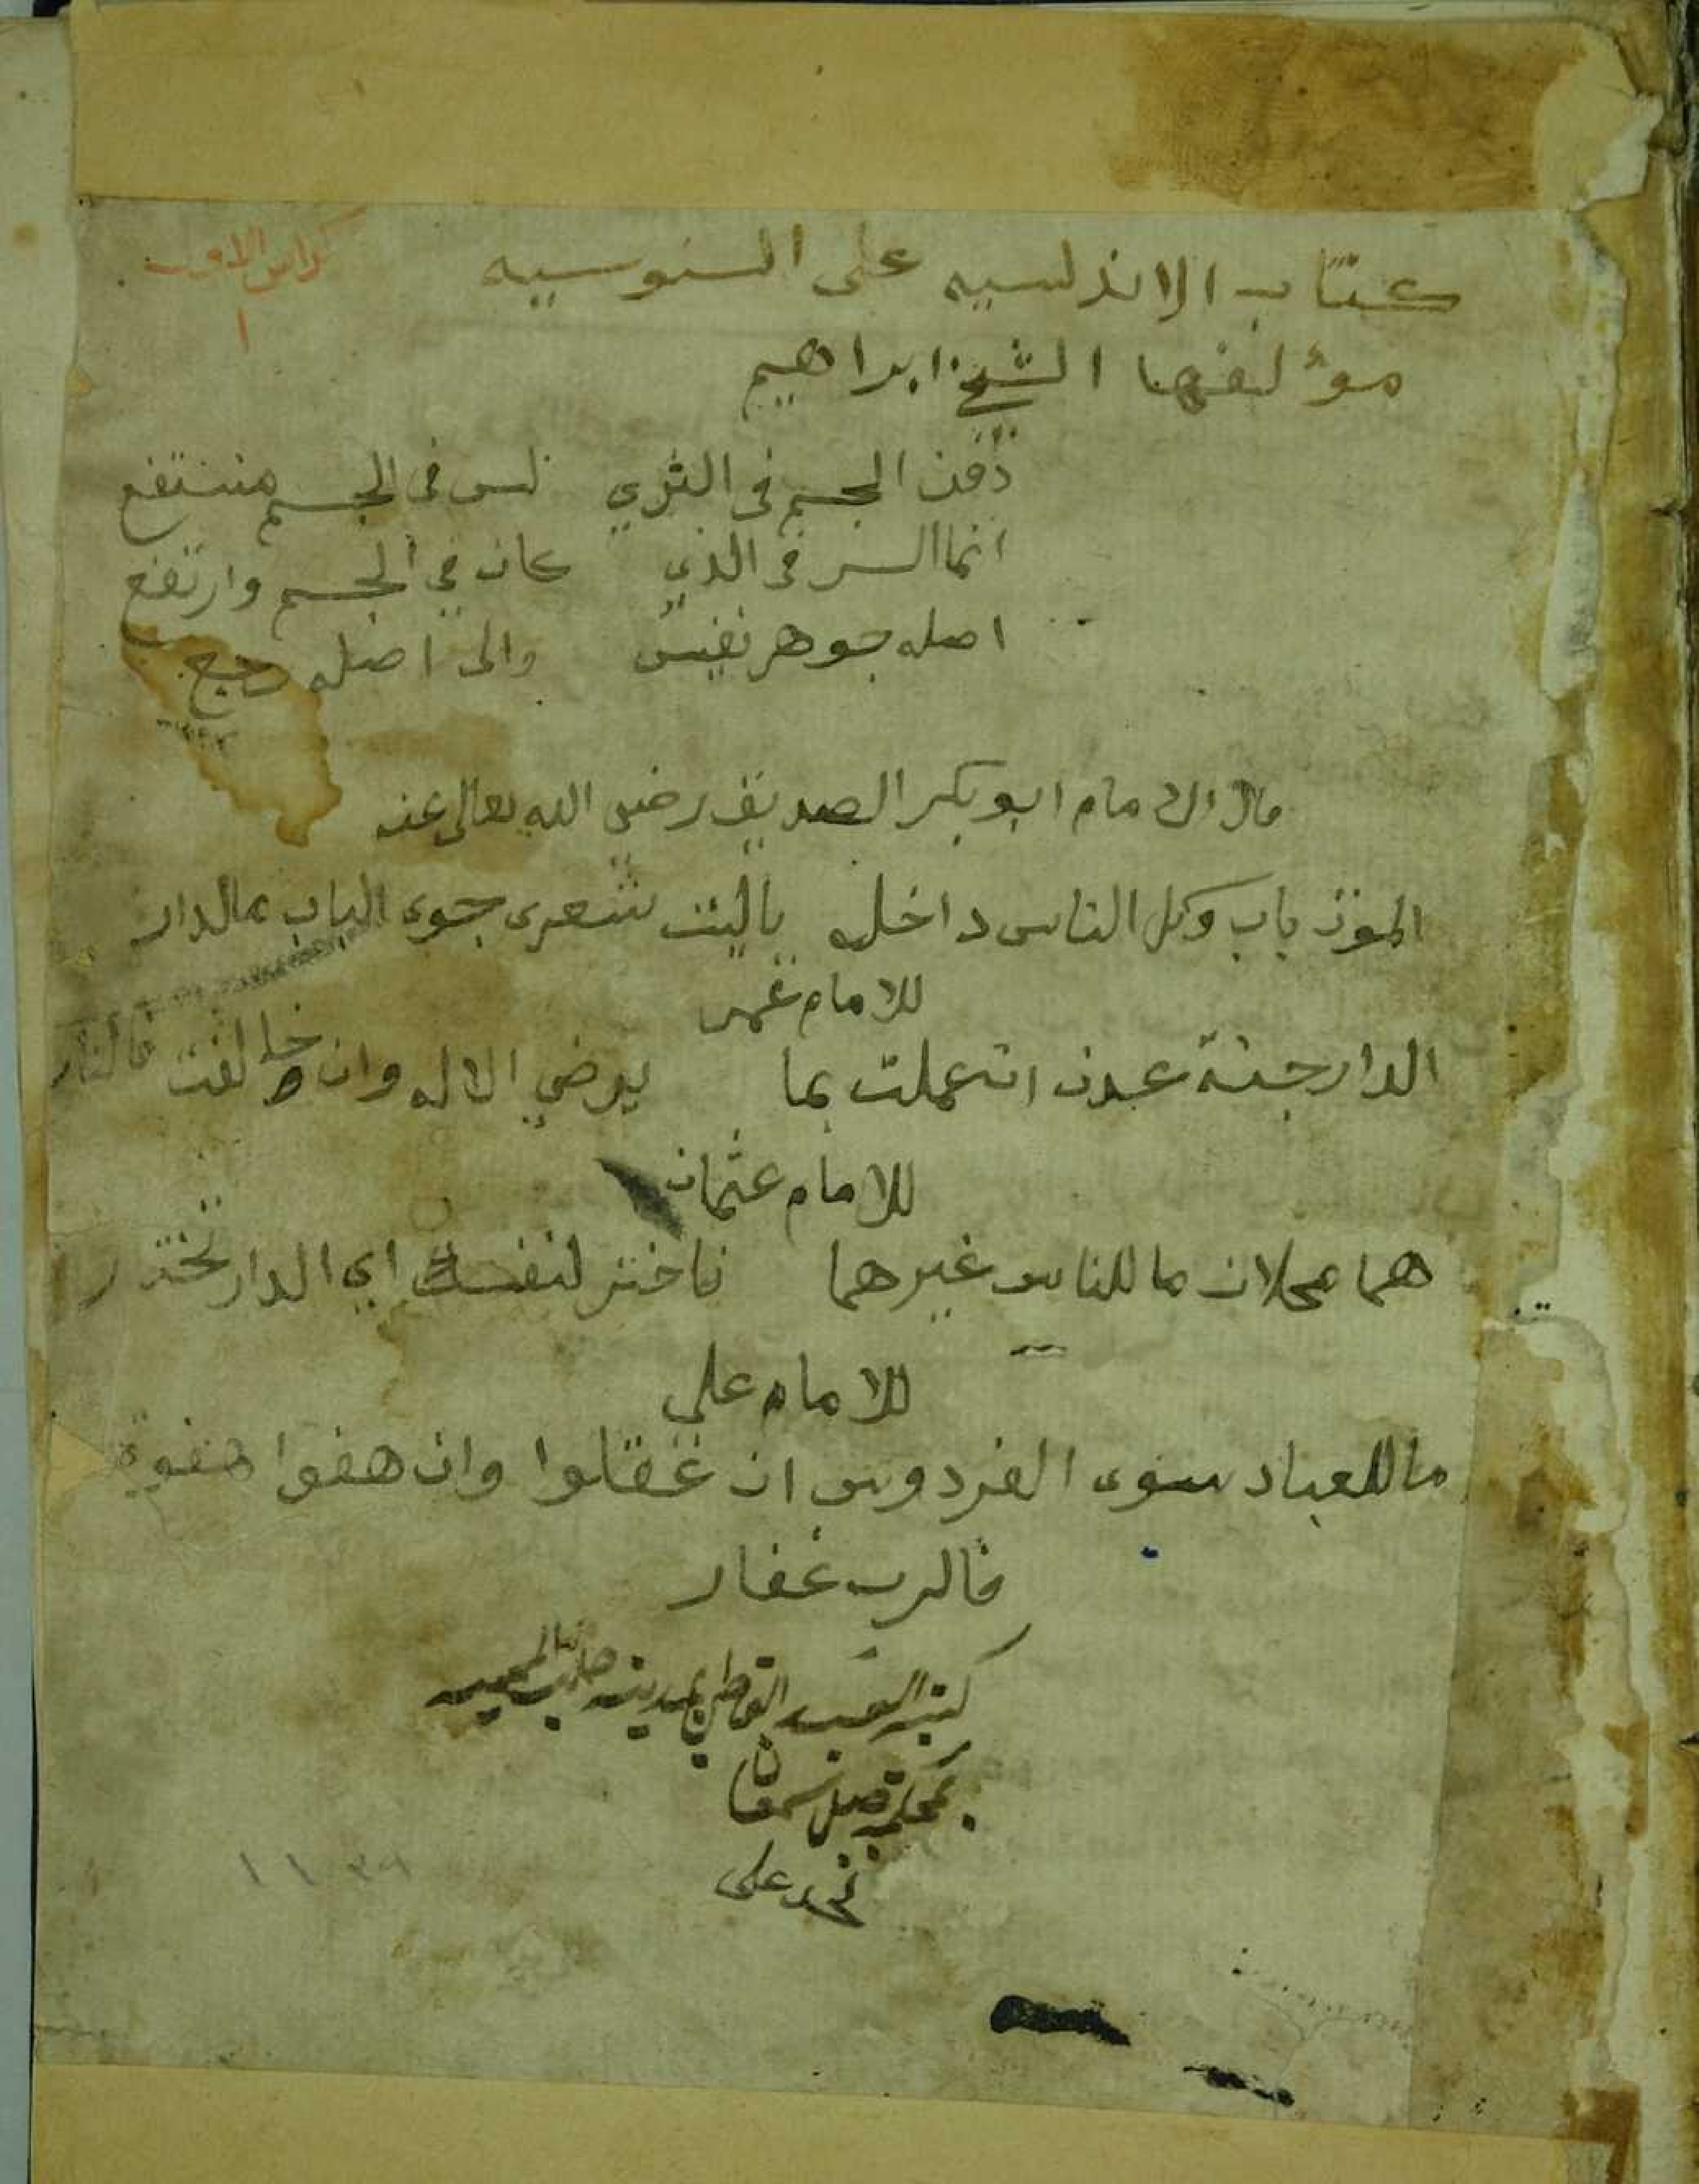 كراس الاول
١
كتاب الاندلسيه على السنوسيه
مؤلفها الشيخ ابراهيم
دفن الجسم في الثري ليس في الجسم منتفع
انما السر في الذي كان في الجسم وارتفع
اصله جوهر نفيس والى اصله رجع
قال الامام ابو بكر الصديق رضي الله تعالى عنه
الموت باب وكل الناس داخله ياليت شعرى جوى الباب مالدار
للامام عمر
الدار جنة عدن ان عملت بما يرضي الاله وان خالفت فالنار
للامام عثمان
هما محلان ما للناس غيرهما فاختر لنفسك اي الدار تختار
للامام علي
ما للعباد سوى الفردوس ان غفلوا وان هفوا هفوة
فالرب غفار
كتبه الفقير القاطن بمدينة حلب
بمحلة
محمد علي
١١٣٩